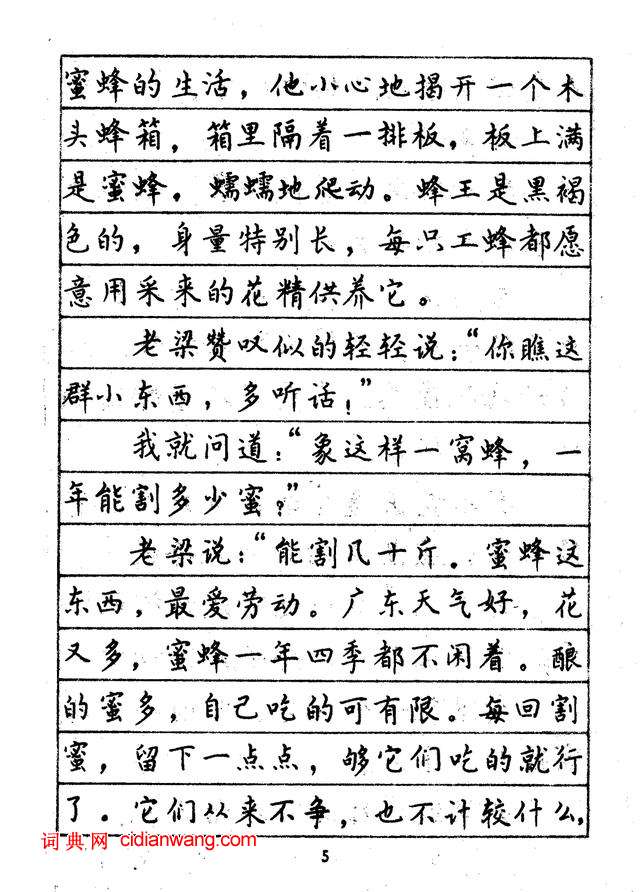 蜜蜂的生活，他小心地揭开一个木
头蜂箱，箱里隔着一排板，板上满
是蜜蜂，蠕蠕地爬动。蜂王是黑褐
色的，身量特别长，每只工蜂都愿
意用采来的花精供养它。
老梁赞叹似的轻轻说：“你瞧这
群小东西，多听话！”
我就问道：“象这样一窝蜂，一
年能割多少蜜？”
老梁说：“能割几十斤。蜜蜂这
东西，最爱劳动。广东天气好，花
又多，蜜蜂一年四季都不闲着。酿
的蜜多，自己吃的可有限。每回割
蜜，留下一点点，够它们吃的就行
了。它们从来不争，也不计较什么，
词典网 cidianwang.com
5